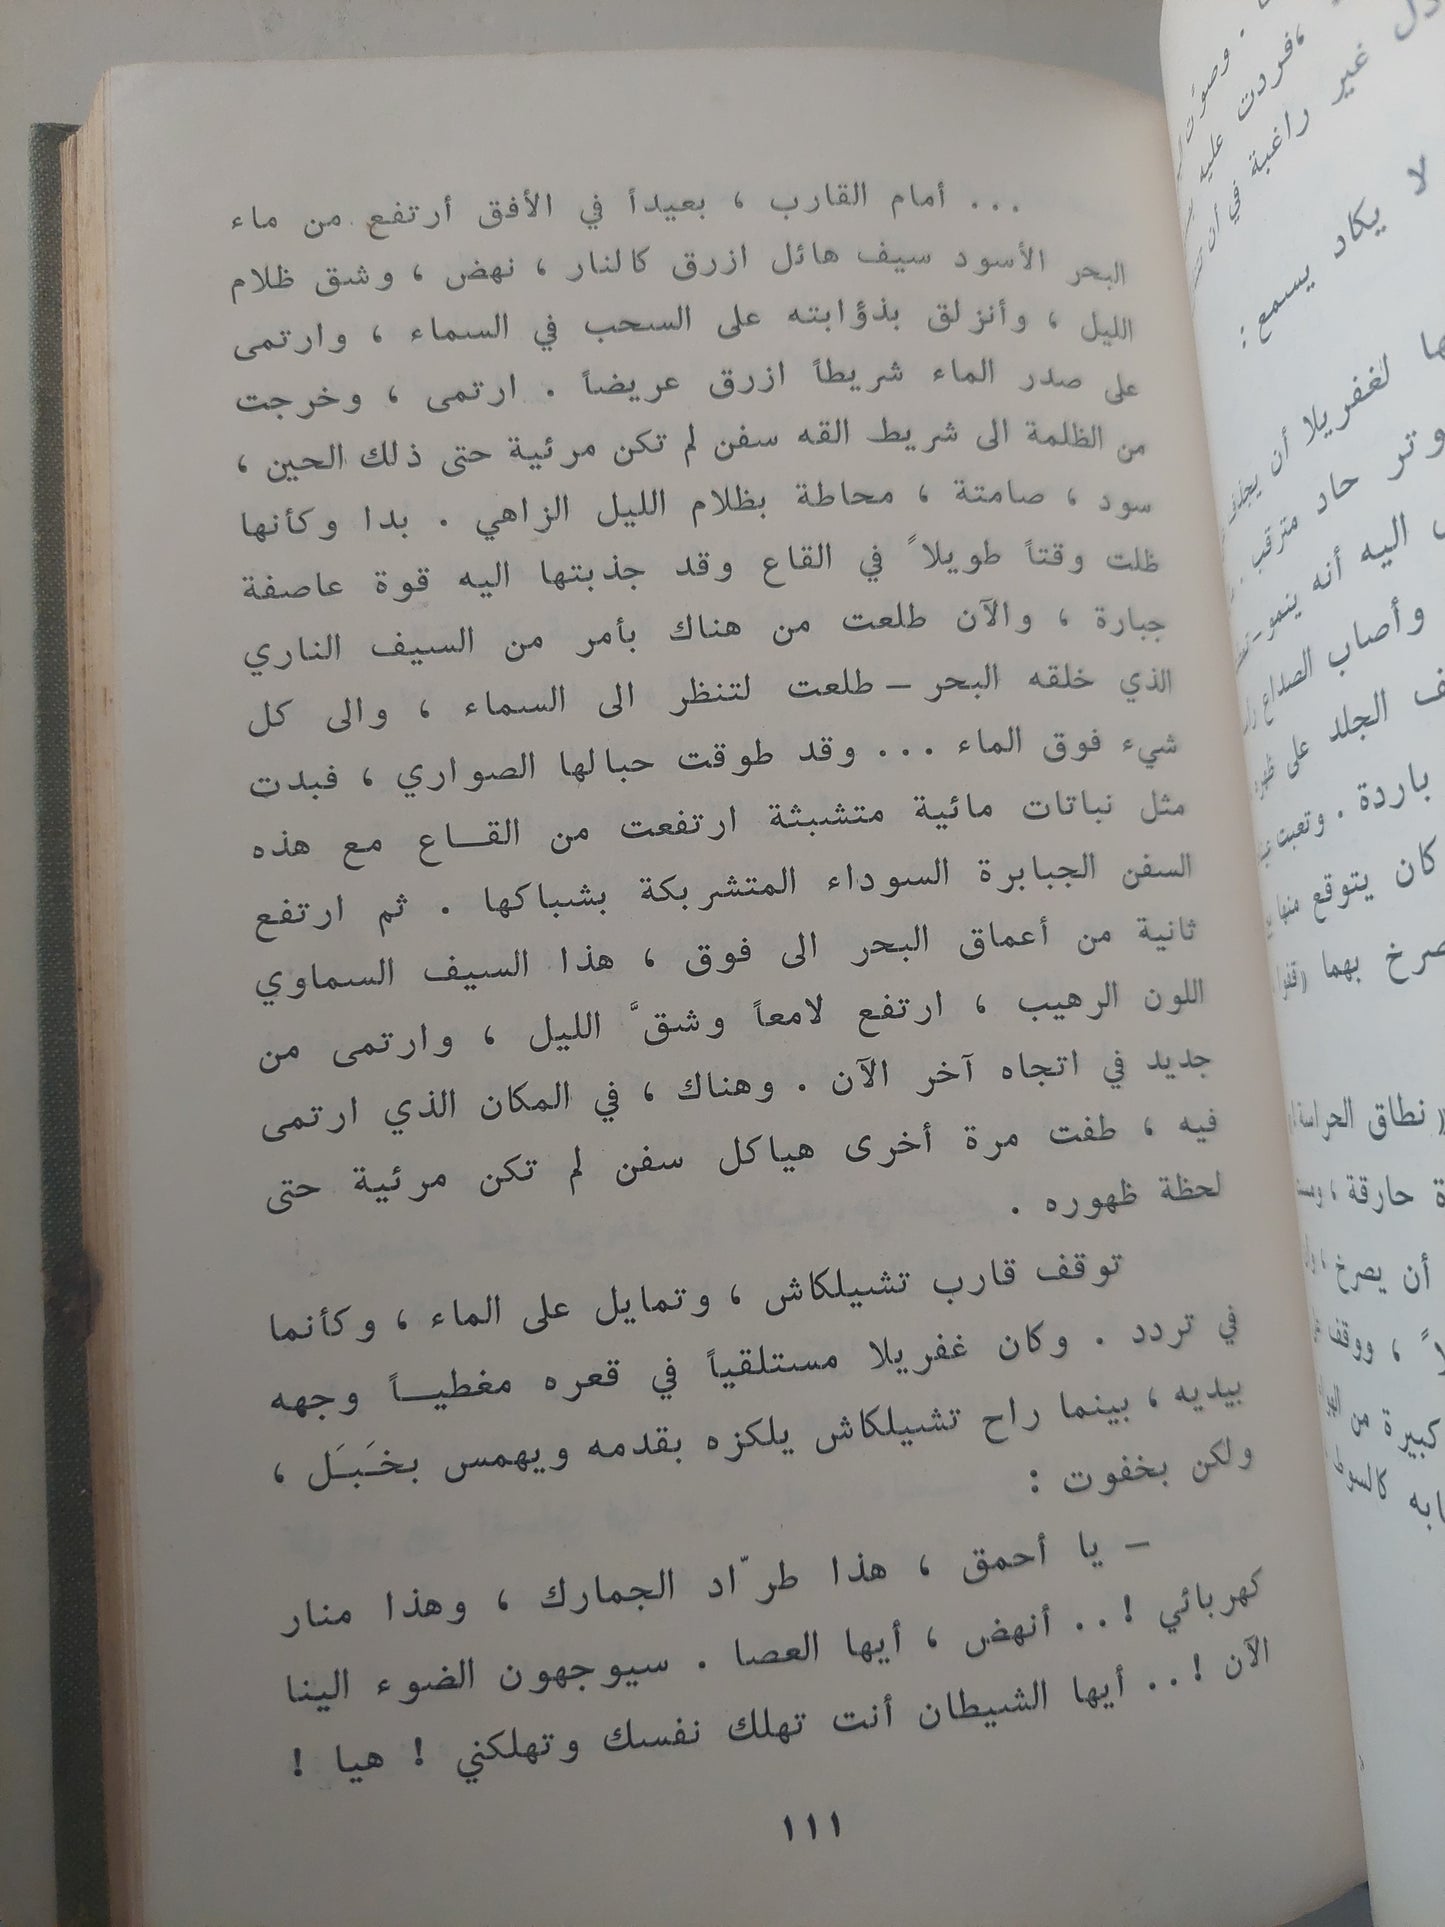 ... أمام القارب ، بعيداً في الأفق أرتفع من ماء
البحر الأسود سيف هائل ازرق كالنار ، نهض ، وشق ظلام
الليل ، وأنزلق بذؤابته على السحب في السماء ، وارتمى
على صدر الماء شريطاً ازرق عريضاً . ارتمى ، وخرجت
من الظلمة الى شريط القه سفن لم تكن مرئية حتى ذلك الحين ،
سود ، صامتة ، محاطة بظلام الليل الزاهي . بدا وكأنها
ظلت وقتاً طويلاً في القاع وقد جذبتها اليه قوة عاصفة
جبارة ، والآن طلعت من هناك بأمر من السيف الناري
الذي خلقه البحر – طلعت لتنظر الى السماء ، والى كل
شيء فوق الماء ... وقد طوقت حبالها الصواري ، فبدت
مثل نباتات مائية متشبثة ارتفعت من القاع مع هذه
السفن الجبابرة السوداء المتشربكة بشباكها . ثم ارتفع
ثانية من أعماق البحر الى فوق ، هذا السيف السماوي
اللون الرهيب ، ارتفع لامعاً وشقَّ الليل ، وارتمى من
جديد في اتجاه آخر الآن . وهناك ، في المكان الذي ارتمى
فيه ، طفت مرة أخرى هياكل سفن لم تكن مرئية حتى
لحظة ظهوره .
توقف قارب تشيلكاش ، وتمايل على الماء ، وكأنما
في تردد . وكان غفريلا مستلقياً في قعره مغطيـاً وجهه
بيديه ، بينما راح تشيلكاش يلكزه بقدمه ويهمس بخَبَل ،
ولكن بخفوت :
– يا أحمق ، هذا طرّاد الجمارك ، وهذا منار
كهربائي !.. أنهض ، أيها العصا . سيوجهون الضوء الينا
الآن !.. أيها الشيطان أنت تهلك نفسك وتهلكني ! هيا !
١١١
فردت عليه
غير راغبة في أن
لا يكاد يسمع :
لغفريلا أن
وتر حاد مترقب
اليه أنه ينمو
وأصاب الصداع
الجلد على
باردة . وتعبت
كان يتوقع منها
بهما
« نطاق الحراسة
حارقة ،
أن يصرخ ،
كبيرة من
كالسوط